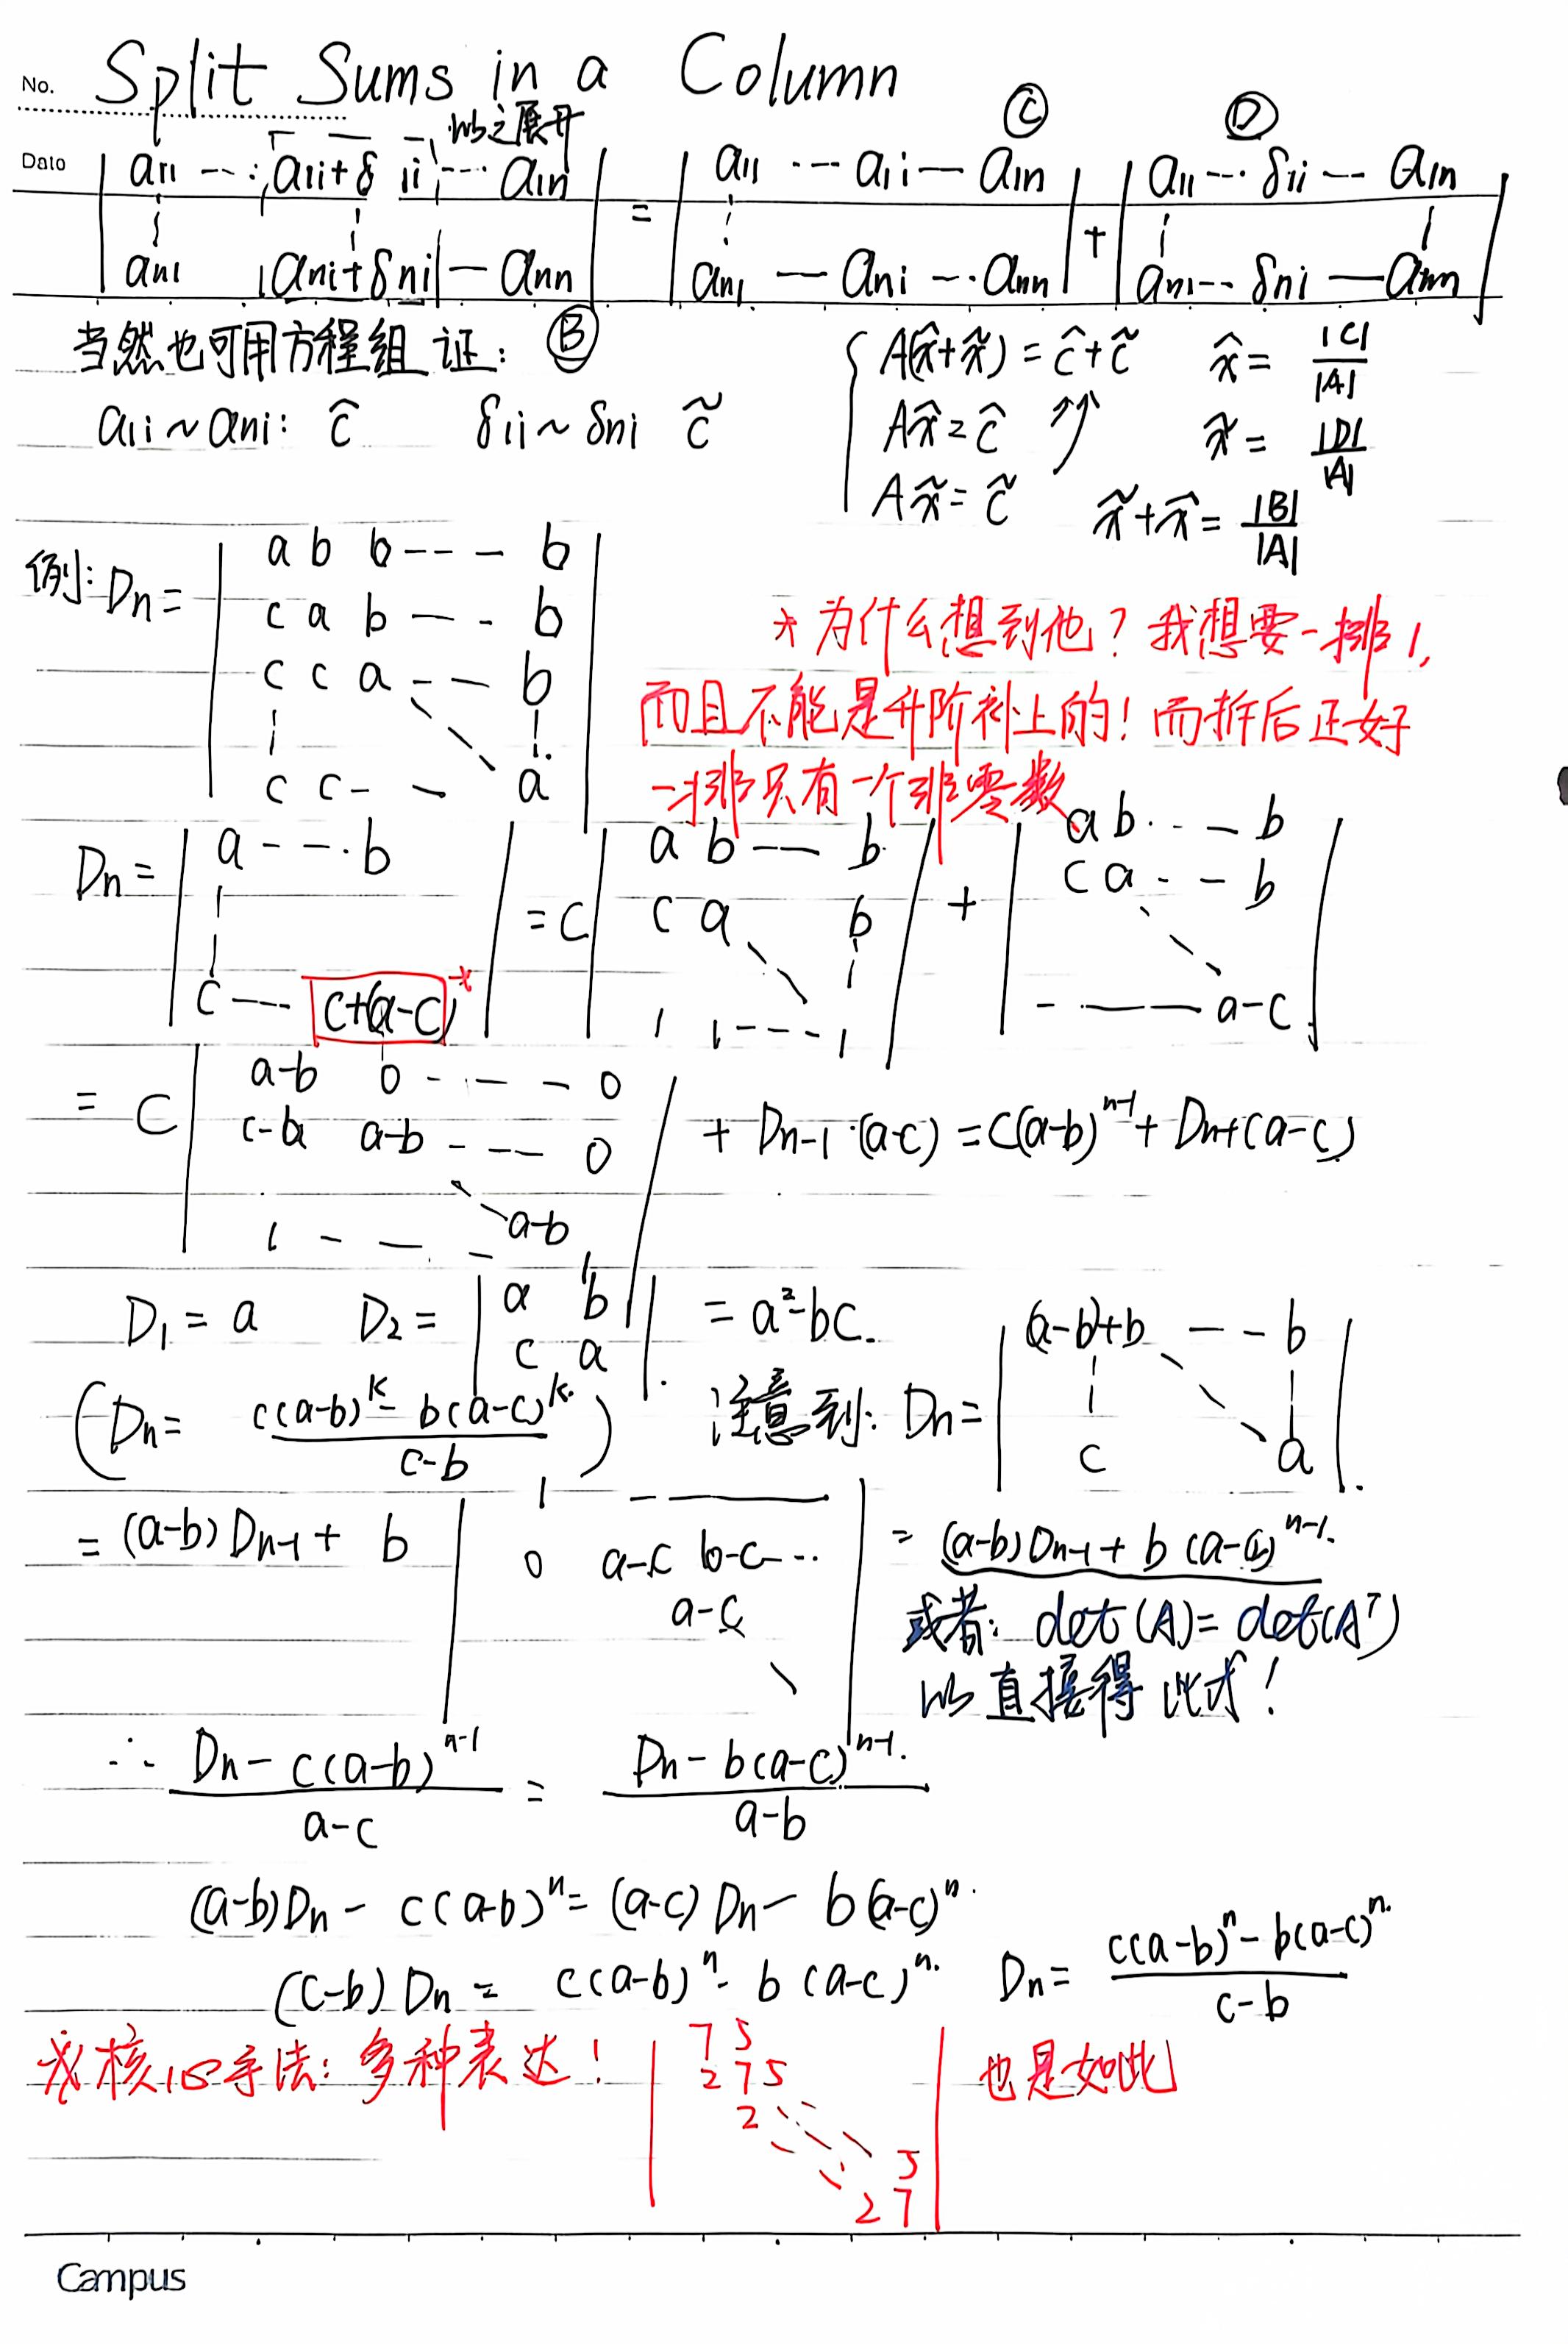 No. Split Sums in a Column
以之展开
Date
| a11 ··· a1i+δ1i ··· a1n | = | a11 ··· a1i — a1n | + | a11 ··· δ1i — a1n |
| an1 ani+δni — ann | | an1 — ani ··· ann | | an1 ··· δni — ann |
Ⓒ Ⓓ
当然也可用方程组证: Ⓑ
a1i~ani: ĉ δ1i~δni c̃
A(x̂+x̃) = ĉ+c̃ x̂ = |C|/|A|
Ax̂ = ĉ ⇈ x̃ = |D|/|A|
Ax̃ = c̃ x̃+x̂ = |B|/|A|
例: Dn = | a b b --- b |
| c a b --- b |
| c c a --- b |
| c c --- a |
*为什么想到他? 我想要一排1,
而且不能是升阶补上的! 而拆后正好
一排只有一个非零数
Dn = | a --- b | = C | a b — b | + | a b ·· — b |
| c a b | | c a -- b |
| c --- c+(a-c)* | | 1 1 --- 1 | | - —— a-c |
= C | a-b 0 --- 0 |
| c-b a-b --- 0 |
a-b
| 1 --- 1 |
+ Dn-1·(a-c) = C(a-b)^{n-1} + Dn-1(a-c)
D1 = a D2 = | a b | = a²-bc.
| c a |
(Dn = (c(a-b)^k - b(a-c)^k)/(c-b))
注意到: Dn = | (a-b)+b -- b |
| c a |
= (a-b)Dn-1 + b | 1 ——— |
| 0 a-c b-c ··· |
| a-c |
= (a-b)Dn-1 + b(a-c)^{n-1}.
或者: det(A) = det(Aᵀ)
以直接得此式!
∴ (Dn - c(a-b)^{n-1})/(a-c) = (Dn - b(a-c)^{n-1})/(a-b)
(a-b)Dn - c(a-b)^n = (a-c)Dn - b(a-c)^n.
(c-b)Dn = c(a-b)^n - b(a-c)^n. Dn = (c(a-b)^n - b(a-c)^n)/(c-b)
核心手法: 多种表达!
| 7 5 |
| 2 7 5 |
| 2 |
| 5 |
| 2 7 |
也是如此
Campus